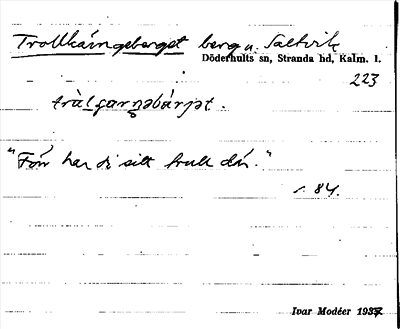 Trollkäringeberget berg v. Saltvik
Döderhults sn, Stranda hd, Kalm. l.
223
"Förr har di sitt trull där."
s. 84.
Ivar Modéer 1937